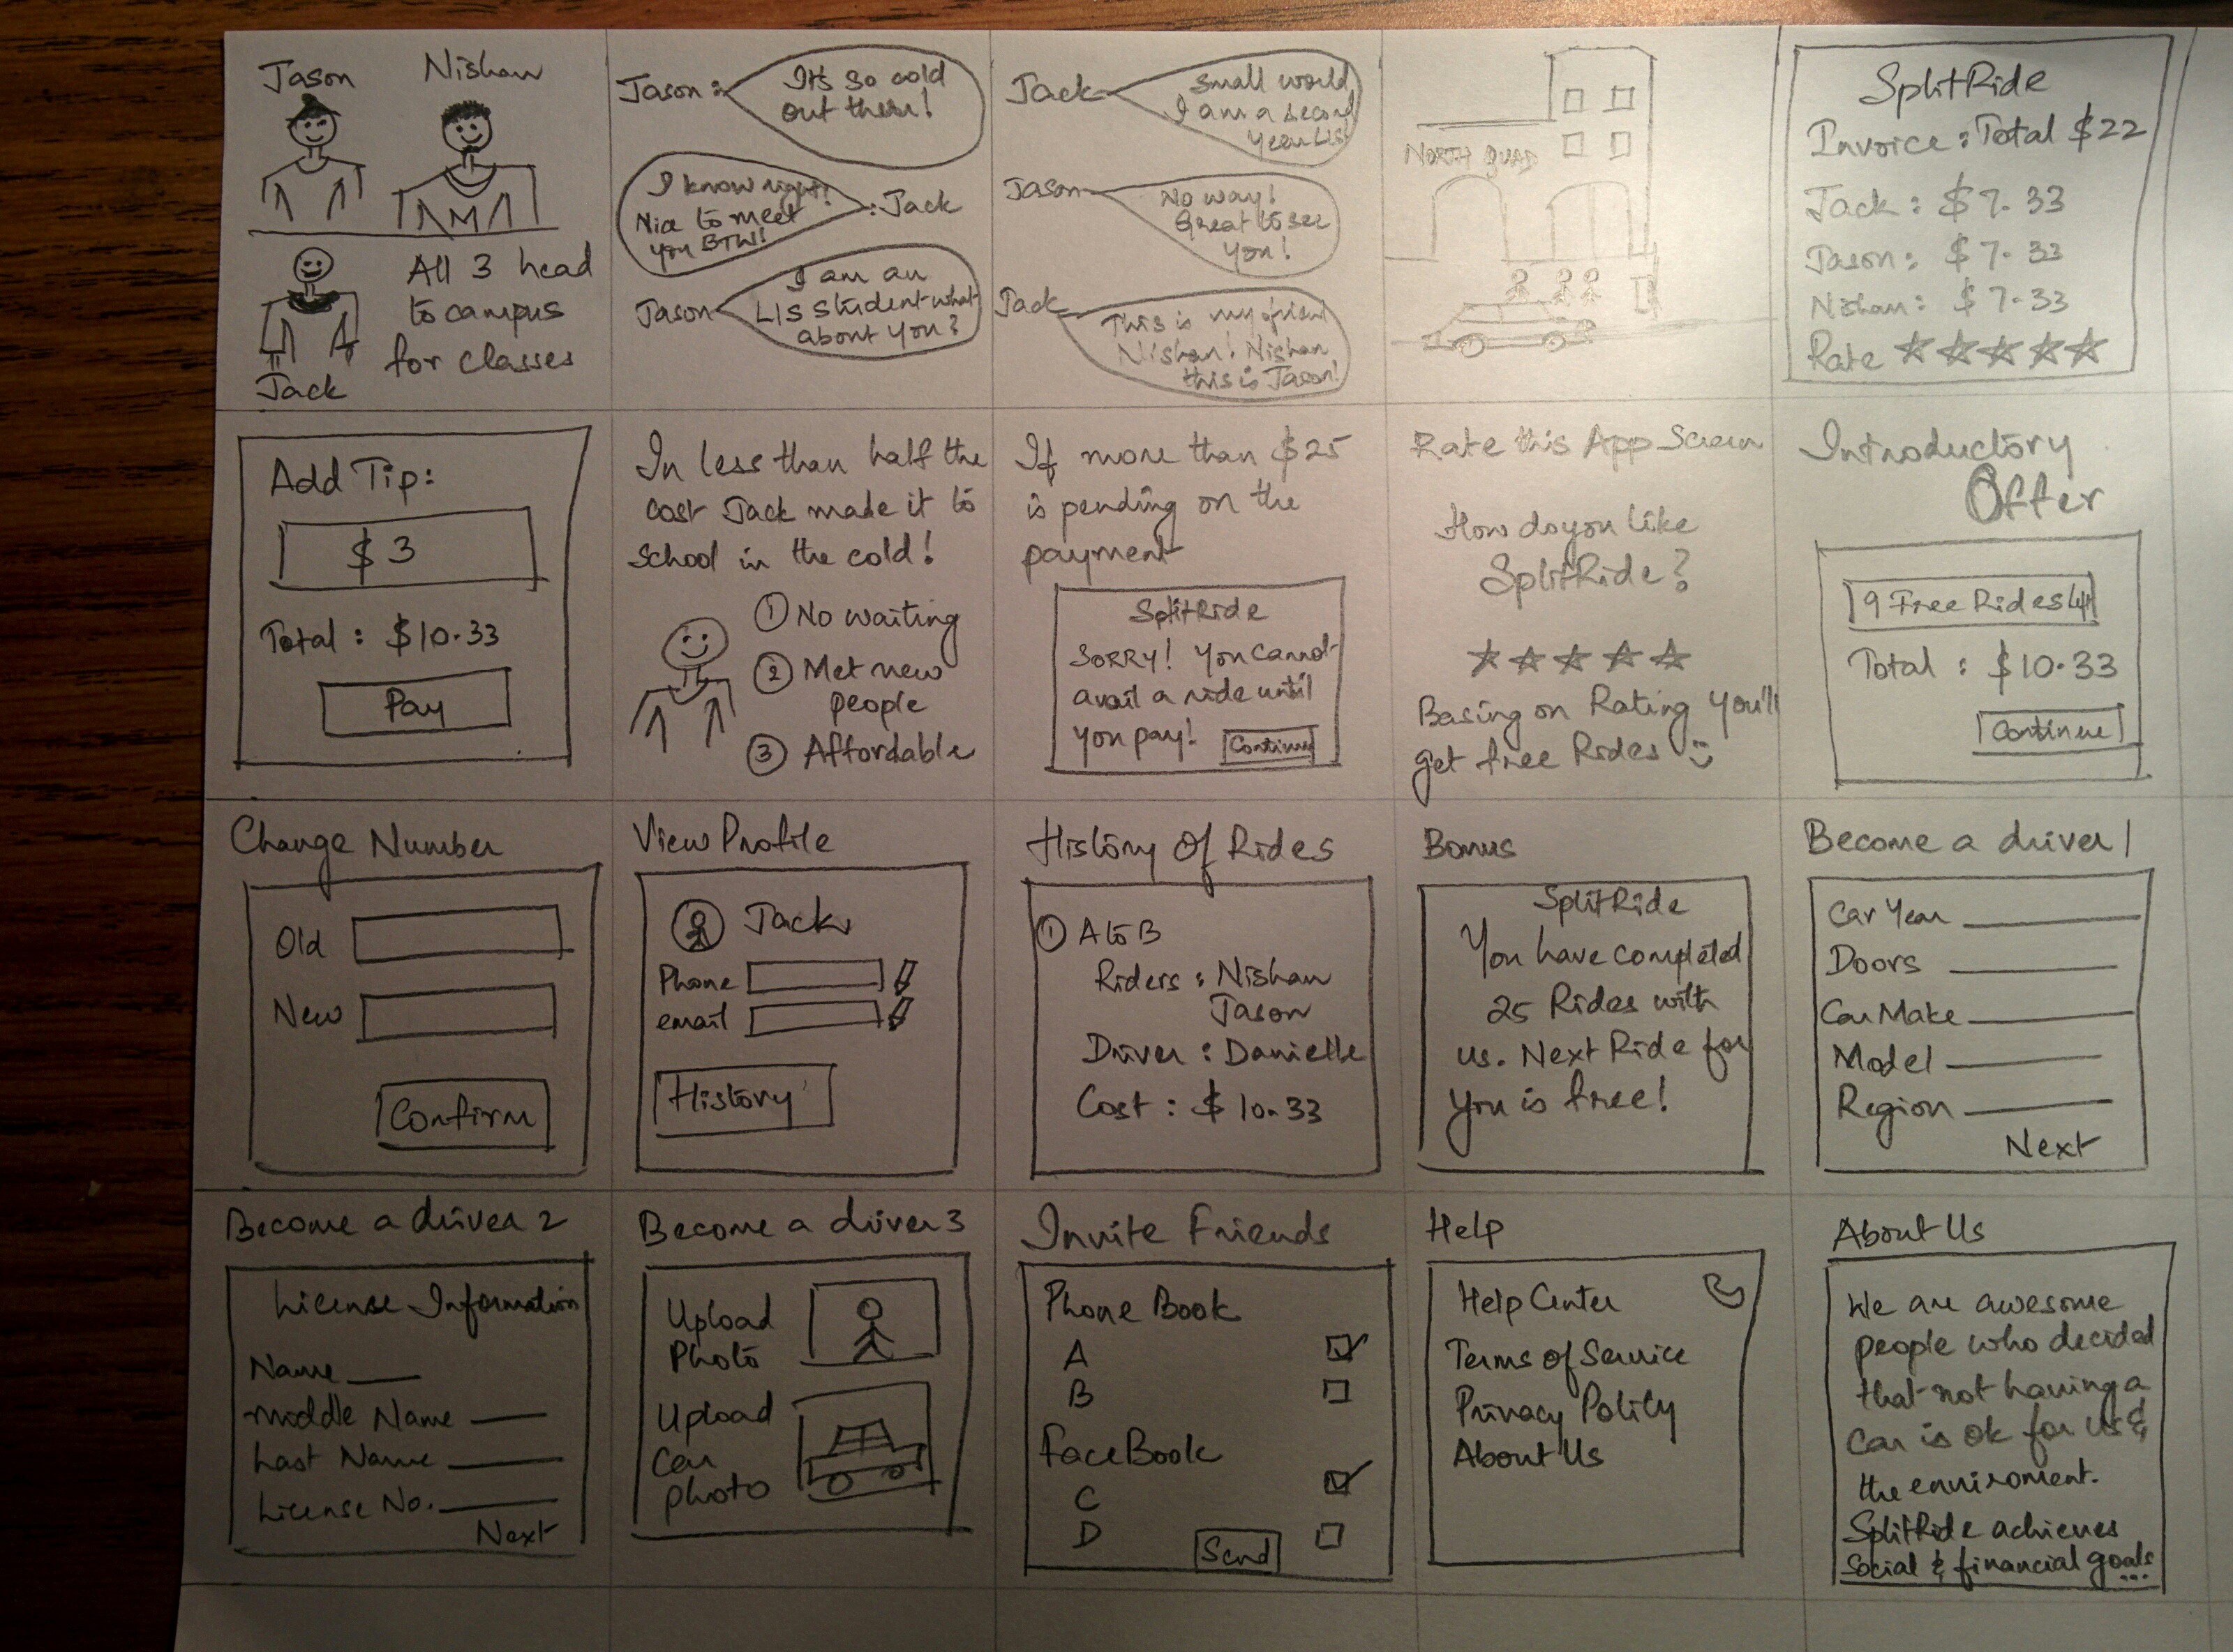 Jason
Nishan
All 3 head
to campus
for classes
Jack
Jason:
It's so cold
out there!
I know right!
Nice to meet
you BTW!
: Jack
Jason
I am an
LIS student what
about you?
Jack
Small world
I am a second
year LIS!
Jason
No way!
Great to see
you!
Jack
This is my friend
Nishan! Nishan
this is Jason!
NORTH QUAD
SplitRide
Invoice : Total $22
Jack : $7.33
Jason : $7.33
Nishan : $7.33
Rate
Add Tip:
$3
Total : $10.33
Pay
In less than half the
cost Jack made it to
school in the cold!
① No waiting
② Met new
people
③ Affordable
If more than $25
is pending on the
payment
SplitRide
SORRY! You cannot
avail a ride until
you pay!
Continue
Rate this App Screen
How do you like
SplitRide?
Basing on Rating you'll
get free Rides
Introductory
Offer
9 Free Rides left
Total : $10.33
Continue
Change Number
Old
New
Confirm
View Profile
Jack
Phone
email
History
History Of Rides
① A to B
Riders : Nishan
Jason
Driver : Danielle
Cost : $10.33
Bonus
SplitRide
You have completed
25 Rides with
us. Next Ride for
you is free!
Become a driver 1
Car Year
Doors
Car Make
Model
Region
Next
Become a driver 2
License Information
Name
Middle Name
Last Name
License No.
Next
Become a driver 3
Upload
Photo
Upload
Car
photo
Invite Friends
Phone Book
A
B
FaceBook
C
D
Send
Help
Help Center
Terms of Service
Privacy Policy
About Us
About Us
We are awesome
people who decided
that not having a
car is ok for us &
the enviroment.
SplitRide achieves
social & financial goals...